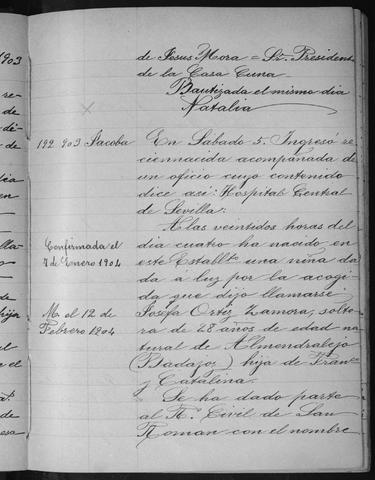 de Jesus Mora = Sr. President
de la Casa Cuna
Bautizada el mismo dia
Natalia
192 903 Jacoba
En Sábado 5. Ingresó re
ciennacida acompañada de
un oficio cuyo contenido
dice así: Hospital Central
de Sevilla:
A las veintidos horas del
dia cuatro ha nacido en
este Establto una niña da
da á luz por la acogi
da que dijo llamarse
Josefa Ortiz Zamora, solte
ra de 28 años de edad na
tural de Almendralejo
(Badajoz) hija de Franco
y Catalina.
Se ha dado parte
al R. Civil de San
Roman con el nombre
Confirmada el
7 de Enero 1904
M. el 12 de
Febrero 1904
1903